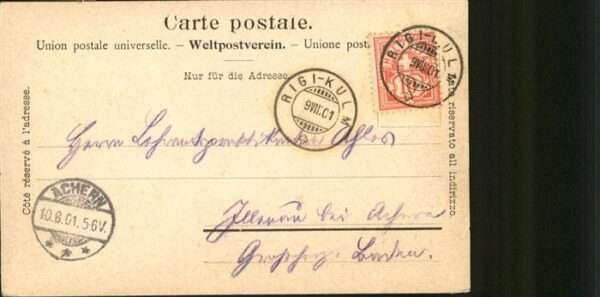 Carte postale.
Union postale universelle. – Weltpostverein. – Unione post
Nur für die Adresse.
RIGI-KULM
9.VIII.01
RIGI-KULM
9.VIII.01
Côté réservé à l'adresse.
Lato riservato all indirizzo.
Herrn Lehramtspraktikant
ACHERN
10.8.01.5-6V.
Illenau bei Achern
Großherz. Baden.